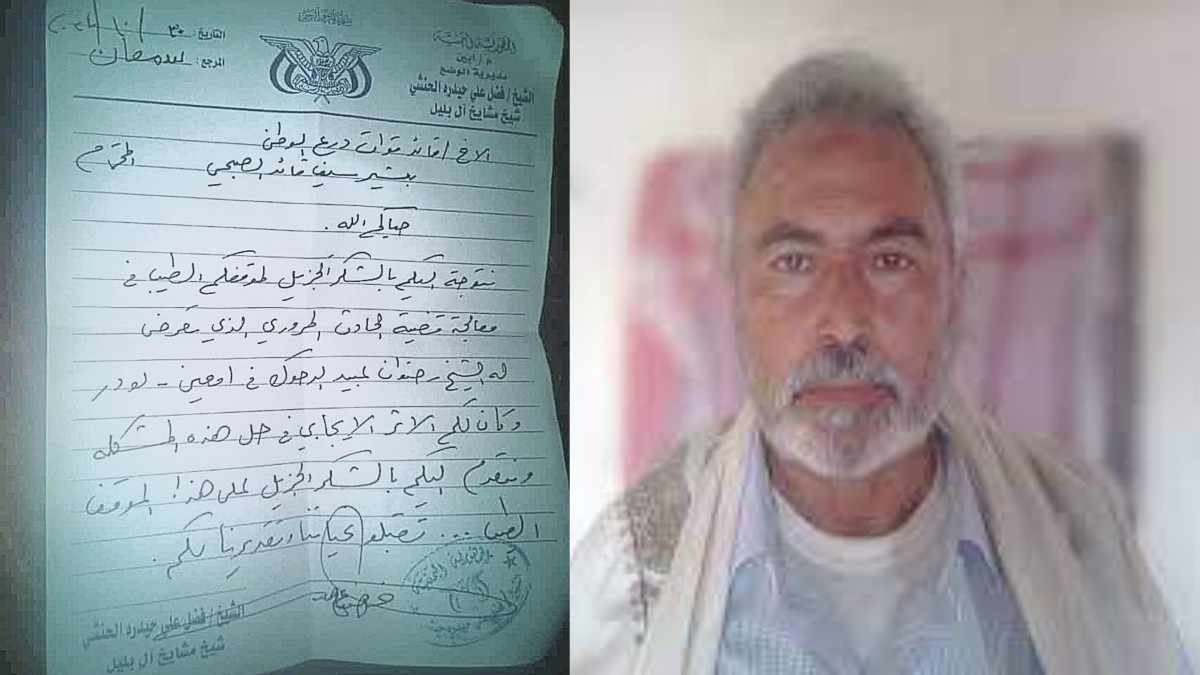 الجمهورية اليمنية
م / أبين
مديرية الوضيع
الشيخ / فضل علي حيدره الحنشي
شيخ مشايخ آل بليل
التاريخ: ٣٠ / ١٠ /
المرجع:
الاخ / قائد قوات درع الوطن
بشير سيف قائد الصبيحي المحترم
حياكم الله .
نتوجة اليكم بالشكر الجزيل لموقفكم الطيب في
معالجة قضية الحادث المروري الذي تعرض
له الشيخ رضوان عبيد الدحوك في امعين - لودر
وكان لكم الاثر الايجابي في حل هذه المشكله
ونتقدم اليكم بالشكر الجزيل على هذا الموقف
الطيب ... تقبلو تحياتنا وتقديرنا لكم .
الشيخ / فضل علي حيدره الحنشي
شيخ مشايخ آل بليل